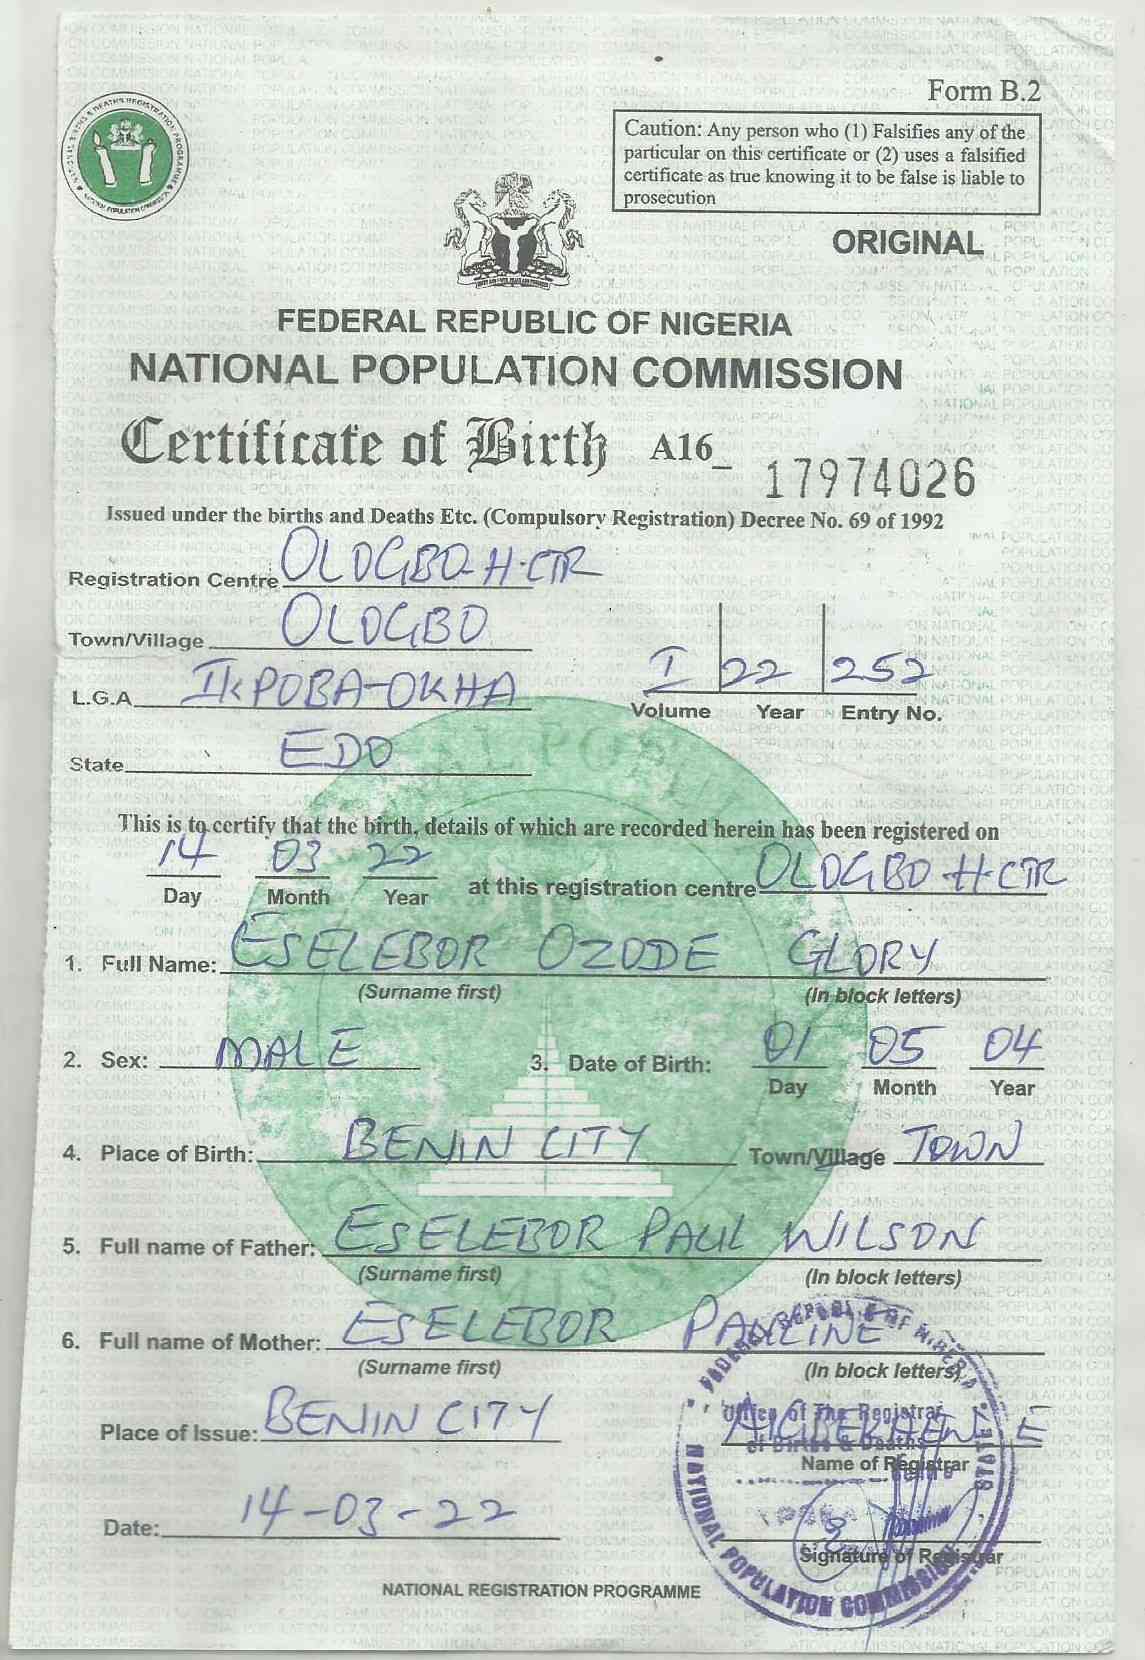 Form B.2
Caution: Any person who (1) Falsifies any of the
particular on this certificate or (2) uses a falsified
certificate as true knowing it to be false is liable to
prosecution
ORIGINAL
FEDERAL REPUBLIC OF NIGERIA
NATIONAL POPULATION COMMISSION
Certificate of Birth A16_ 17974026
Issued under the births and Deaths Etc. (Compulsory Registration) Decree No. 69 of 1992
Registration Centre OLOGBO-H-CTR
Town/Village OLOGBO
L.G.A IKPOBA-OKHA
I 22 252
Volume Year Entry No.
State EDO
This is to certify that the birth, details of which are recorded herein has been registered on
14 03 22 at this registration centre OLOGBO H-CTR
Day Month Year
1. Full Name: ESELEBOR OZODE GLORY
(Surname first) (In block letters)
2. Sex: MALE 3. Date of Birth: 01 05 04
Day Month Year
4. Place of Birth: BENIN CITY Town/Village TOWN
5. Full name of Father: ESELEBOR PAUL WILSON
(Surname first) (In block letters)
6. Full name of Mother: ESELEBOR PAULINE
(Surname first) (In block letters)
Place of Issue: BENIN CITY
Name of Registrar
Date: 14-03-22
Signature of Registrar
FEDERAL REPUBLIC OF NIGERIA
Office of The Registrar
of Births & Deaths
NATIONAL POPULATION COMMISSION
NATIONAL REGISTRATION PROGRAMME